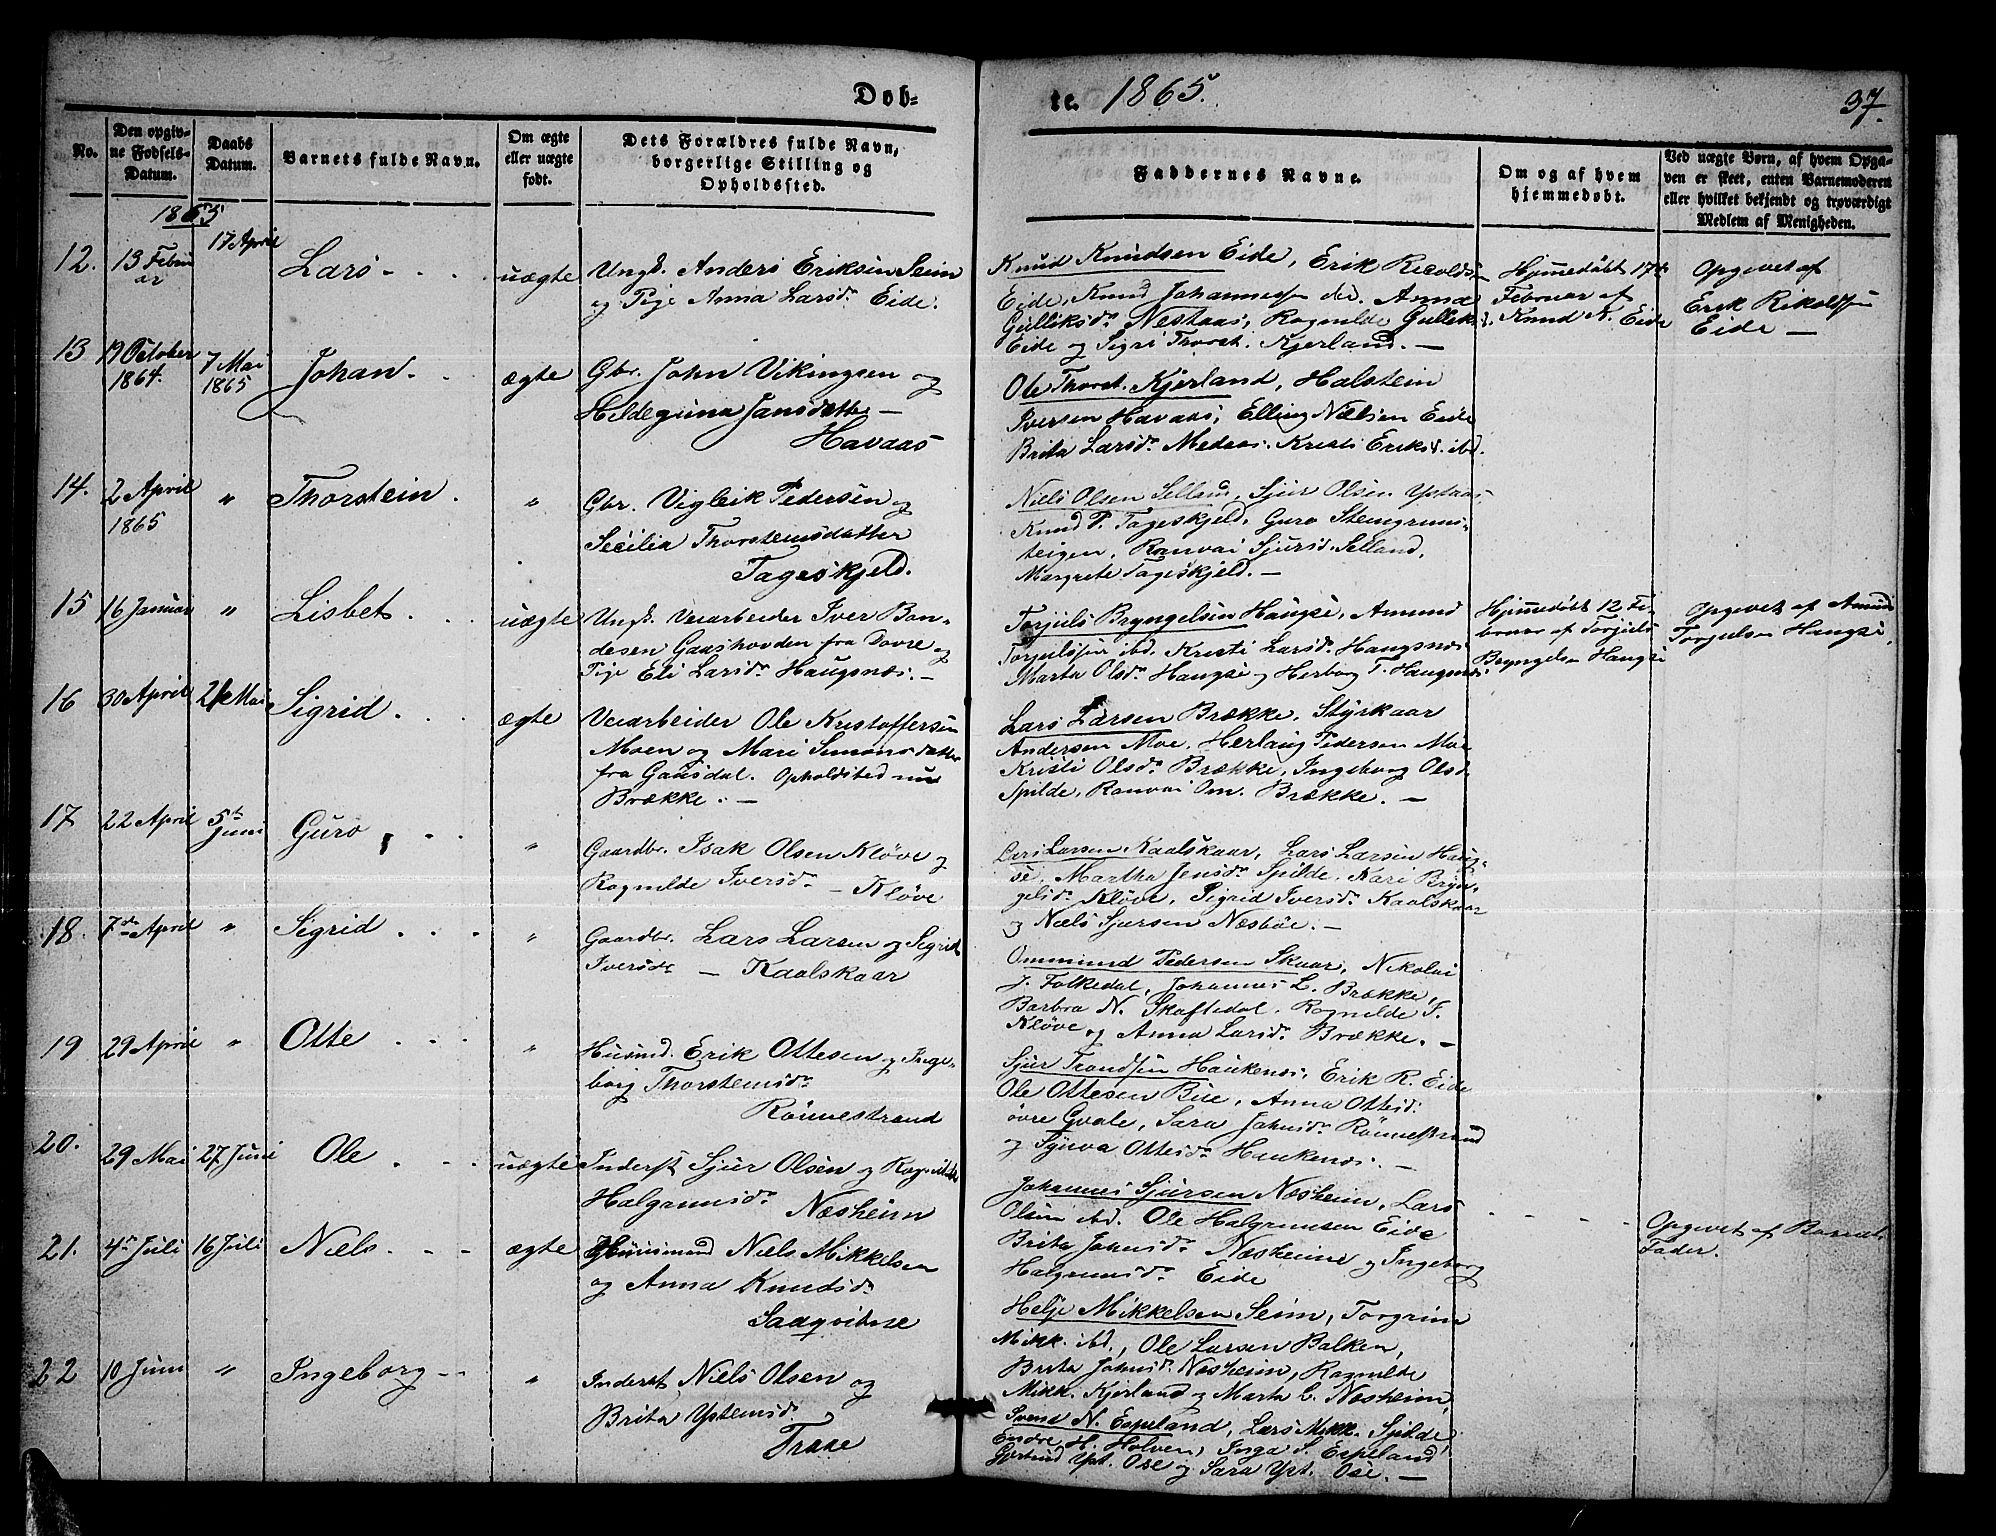 Døb-
te. 1865.
37.
No.
Den opgiv-
ne Fødsels-
Datum.
Daabs
Datum.
Barnets fulde Navn.
Om ægte
eller uægte
født.
Dets Forældres fulde Navn,
borgerlige Stilling og
Opholdssted.
Faddernes Navne.
Om og af hvem
hjemmedøbt.
Ved uægte Børn, af hvem Opga-
ven er skeet, enten Barnemoderen
eller hvilket bekjendt og troværdigt
Medlem af Menigheden.
1865
12. 13 Febru
ar
17 April
Lars
uægte
Ungk. Anders Eriksen Seim
og Pige Anna Larsd. Eide.
Knud Knudsen Eide, Erik Ricolds.
Eide, Knud Johannessen ibd. Anna
Gulliksd. Nestaas, Ragnilde Gulliks
Eide og Sigri Thorst. Kjerland.
Hjemmedøbt 17de
Februar af
Knud K. Eide
Opgevet af
Erik Rikoldsen
Eide
13 19 October
1864.
7 Mai
1865
Johan
ægte
Gbr. John Vikingsen og
Hildeguna Jansdatter
Havaas
Ole Thorst. Kjerland, Halstein
Iversen Havaas, Elling Nielsen Eide
Brita Larsd. Medaas. Kristi Eriksd. ibd.
14. 2 April
1865
"
Thorstein
"
Gbr. Vigleik Pedersen og
Secilia Thorsteinsdatter
Tageskjeld.
Niels Olsen Selland, Sjur Olsen Ystaas
Knud P. Tageskjeld, Guro Steingrims-
teigen, Ranvai Sjursd. Selland,
Margrete Tageskjeld.
15 16 Januar
"
Lisbet
uægte
Ungk. Veiarbeider Iver Bon-
desen Gaashovden fra Dovre og
Pige Eli Larsd. Haugsnæs.
Torjuls Bryngelsen Haugse, Amund
Torjulsen ibd. Kristi Larsd. Haugsnæs
Marta Olsd. Haugse og Herborg T. Haugsnæs
Hjemmedøbt 12 Fe-
bruar af Torjuls
Bryngelsen Haugse
Opgevet af Amund
Torjulsen Haugse.
16 30 April
21 Mai
Sigrid
ægte
Veiarbeider Ole Kristoffersen
Moen og Mari Simonsdatter
fra Gausdal. Opholdsted nu
Brække.
Lars Larsen Brække, Styrkaar
Andersen Moe, Herlaug Pedersen Moe
Kristi Olsd. Brække, Ingeborg Olsd.
Spilde, Ranvai Om. Brække.
17 22 April
5te
Juni
Guro
"
Gaardbr. Isak Olsen Kløve og
Ragnilde Iversd. Kløve
Lars Larsen Kaalskaar, Lars Larsen Haug-
se. Martha Jensd. Spilde. Kari Bryn-
gelsd. Kløve, Sigrid Iversd. Kaalskaar
og Niels Sjursen Næsbøe.
18. 7de April
"
Sigrid
"
Gaardbr. Lars Larsen og Sigrid
Iversd. Kaalskaar
Ommund Pedersen Skaar, Nikolai
J. Folkedal, Johannes L. Brække,
Barbra N. Skaftedal, Ragnilde I.
Kløve og Anna Larsd. Brække.
19 29 April
"
Otte
"
Husmd. Erik Ottesen og Inge-
borg Thorsteinsd.
Rønnestrand
Sjur Trondsen Haukenæs, Erik R. Eide
Ole Ottesen Bue, Anna Ottesd.
øvre Gvale, Sara Johnsd. Rønnestrand
og Synva Ottesd. Haukenæs.
20. 29 Mai
27 Juni
Ole
uægte
Inderst Sjur Olsen og Ragnilde
Halgrimsd. Næsheim
Johannes Sjursen Næsheim, Lars
Olsen ibd. Ole Halgrimsen Eide
Brita Johnsd. Næsheim og Ingeborg
Halgrimsd. Eide
Opgevet af Barnets
Fader.
21. 4de Juli
16 Juli
Niels
ægte
Huusmand Niels Mikkelsen
og Anna Knudsd.
Saaqvitne
Helje Mikkelsen Seim, Torgrim
Mikk. ibd., Ole Larsen Balken,
Brita Johnsd. Næsheim, Ragnilde
Mikk. Kjerland og Marta L. Næsheim
22 10 Juni
"
Ingeborg
"
Inderst Niels Olsen og
Brita Ystensd.
Traae
Svend N. Espeland, Lars Mikk. Spilde
Endre H. Holven, Inga S. Espeland
Gjertrud Yst. Ose og Sara Yst. Ose.